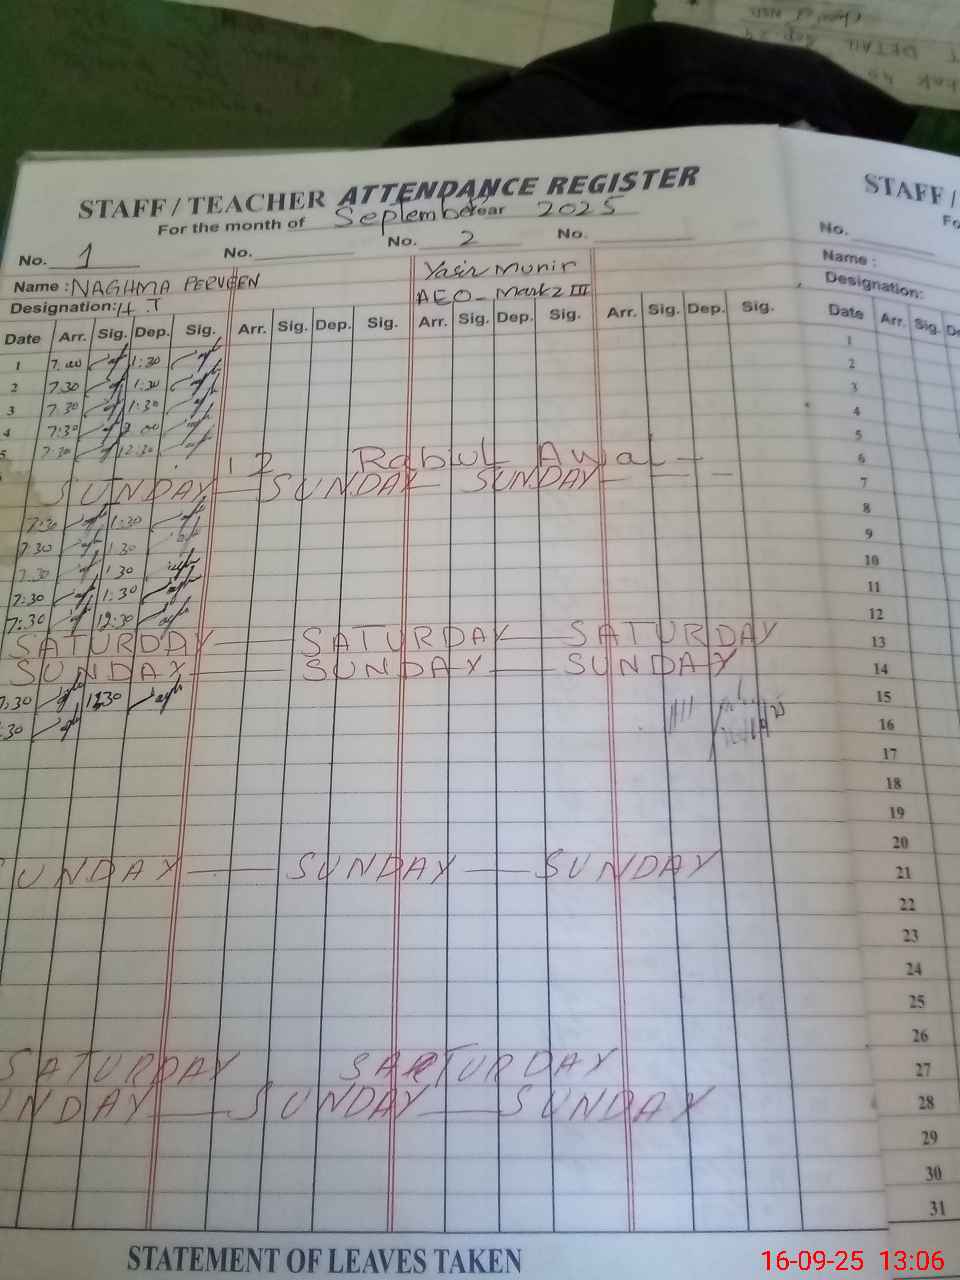 STAFF / TEACHER ATTENDANCE REGISTER
For the month of September Year 2025
No. 1 No. No. 2 No.
Name : NAGHMA PERVEEN Yasir Munir
Designation: H.T AEO-
Date Arr. Sig. Dep. Sig. Arr. Sig. Dep. Sig. Arr. Sig. Dep. Sig. Arr. Sig. Dep. Sig.
1 7:00 1:30
2 7:30 1:30
3 7:30 1:30
4 7:30
5 7:30 12:30
12 Rabiul Awal
SUNDAY SUNDAY SUNDAY
7:30 1:30
7:30 1:30
7:30 1:30
7:30 1:30
7:30 12:30
SATURDAY SATURDAY SATURDAY
SUNDAY SUNDAY SUNDAY
7:30
:30
SUNDAY SUNDAY SUNDAY
SATURDAY SATURDAY
UNDAY SUNDAY SUNDAY
STATEMENT OF LEAVES TAKEN
STAFF /
Fo
No.
Name :
Designation:
Date Arr. Sig. D
1
2
3
4
5
6
7
8
9
10
11
12
13
14
15
16
17
18
19
20
21
22
23
24
25
26
27
28
29
30
31
DETAIL
16-09-25 13:06